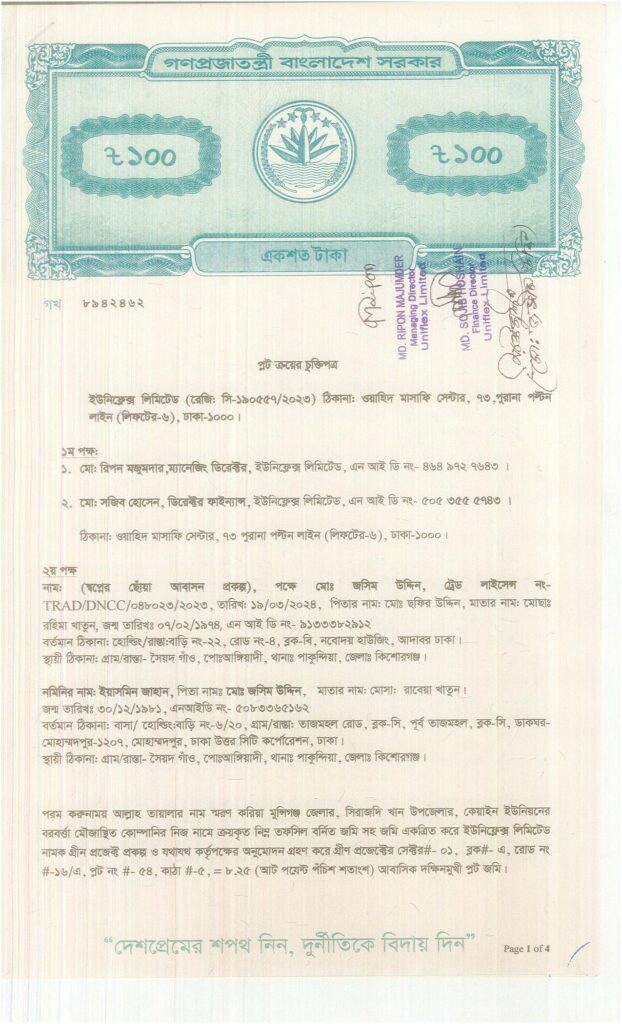 গণপ্রজাতন্ত্রী বাংলাদেশ সরকার
৳১০০
৳১০০
একশত টাকা
গখ ৮৯৪২৪৬২
MD. RIPON MAJUMDER
Managing Director
Uniflex Limited
MD. SOJIB HOSHAIN
Finance Director
Uniflex Limited
প্লট ক্রয়ের চুক্তিপত্র
ইউনিফ্লেক্স লিমিটেড (রেজি: সি-১৯০৫৫৭/২০২৩) ঠিকানা: ওয়াহিদ মাসাফি সেন্টার, ৭৩,পুরানা পল্টন
লাইন (লিফটের-৬), ঢাকা-১০০০।
১ম পক্ষ:
১. মো: রিপন মজুমদার,ম্যানেজিং ডিরেক্টর, ইউনিফ্লেক্স লিমিটেড, এন আই ডি নং- ৪৬৪ ৯৭২ ৭৬৪৩ ।
২. মো: সজিব হোসেন, ডিরেক্টর ফাইন্যান্স, ইউনিফ্লেক্স লিমিটেড, এন আই ডি নং- ৫০৫ ৩৫৫ ৫৭৪৩ ।
ঠিকানা: ওয়াহিদ মাসাফি সেন্টার, ৭৩ পুরানা পল্টন লাইন (লিফটের-৬), ঢাকা-১০০০।
২য় পক্ষ
নাম: (স্বপ্নের ছোঁয়া আবাসন প্রকল্প), পক্ষে মোঃ জসিম উদ্দিন, ট্রেড লাইসেন্স নং-
TRAD/DNCC/০৪৮০২৩/২০২৩, তারিখ: ১৯/০৩/২০২৪, পিতার নাম: মোঃ ছফির উদ্দিন, মাতার নাম: মোছাঃ
রহিমা খাতুন, জন্ম তারিখঃ ০৭/০২/১৯৭৪, এন আই ডি নং- ৯১৩৩৩৮২৯১২
বর্তমান ঠিকানা: হোল্ডিং/রাস্তা:বাড়ি নং-২২, রোড নং-৪, ব্লক-বি, নবোদয় হাউজিং, আদাবর ঢাকা।
স্থায়ী ঠিকানা: গ্রাম/রাস্তা- সৈয়দ গাঁও, পোঃআঙ্গিয়াদী, থানাঃ পাকুন্দিয়া, জেলাঃ কিশোরগঞ্জ।
নমিনির নাম: ইয়াসমিন জাহান, পিতা নামঃ মোঃ জসিম উদ্দিন, মাতার নাম: মোসা: রাবেয়া খাতুন।
জন্ম তারিখঃ ৩০/১২/১৯৮১, এনআইডি নং- ৫০৮৩৩৬৫১৬২
বর্তমান ঠিকানা: বাসা/ হোল্ডিং:বাড়ি নং-৬/২০, গ্রাম/রাস্তা: তাজমহল রোড, ব্লক-সি, পূর্ব তাজমহল, ব্লক-সি, ডাকঘর-
মোহাম্মদপুর-১২০৭, মোহাম্মদপুর, ঢাকা উত্তর সিটি কর্পোরেশন, ঢাকা।
স্থায়ী ঠিকানা: গ্রাম/রাস্তা- সৈয়দ গাঁও, পোঃআঙ্গিয়াদী, থানাঃ পাকুন্দিয়া, জেলাঃ কিশোরগঞ্জ।
পরম করুনাময় আল্লাহ তায়ালার নাম স্মরণ করিয়া মুন্সিগঞ্জ জেলার, সিরাজদি খান উপজেলার, কেয়াইন ইউনিয়নের
বরবর্ত্তা মৌজাস্থিত কোম্পানির নিজ নামে ক্রয়কৃত নিম্ন তফসিল বর্নিত জমি সহ জমি একত্রিত করে ইউনিফ্লেক্স লিমিটেড
নামক গ্রীন প্রজেক্ট প্রকল্প ও যথাযথ কর্তৃপক্ষের অনুমোদন গ্রহণ করে গ্রীণ প্রজেক্টের সেক্টর#- ০১, ব্লক#- এ, রোড নং
#-১৬/এ, প্লট নং #- ৫৪, কাঠা #-৫, = ৮.২৫ (আট পয়েন্ট পঁচিশ শতাংশ) আবাসিক দক্ষিনমুখী প্লট জমি।
“দেশপ্রেমের শপথ নিন, দুর্নীতিকে বিদায় দিন”
Page 1 of 4